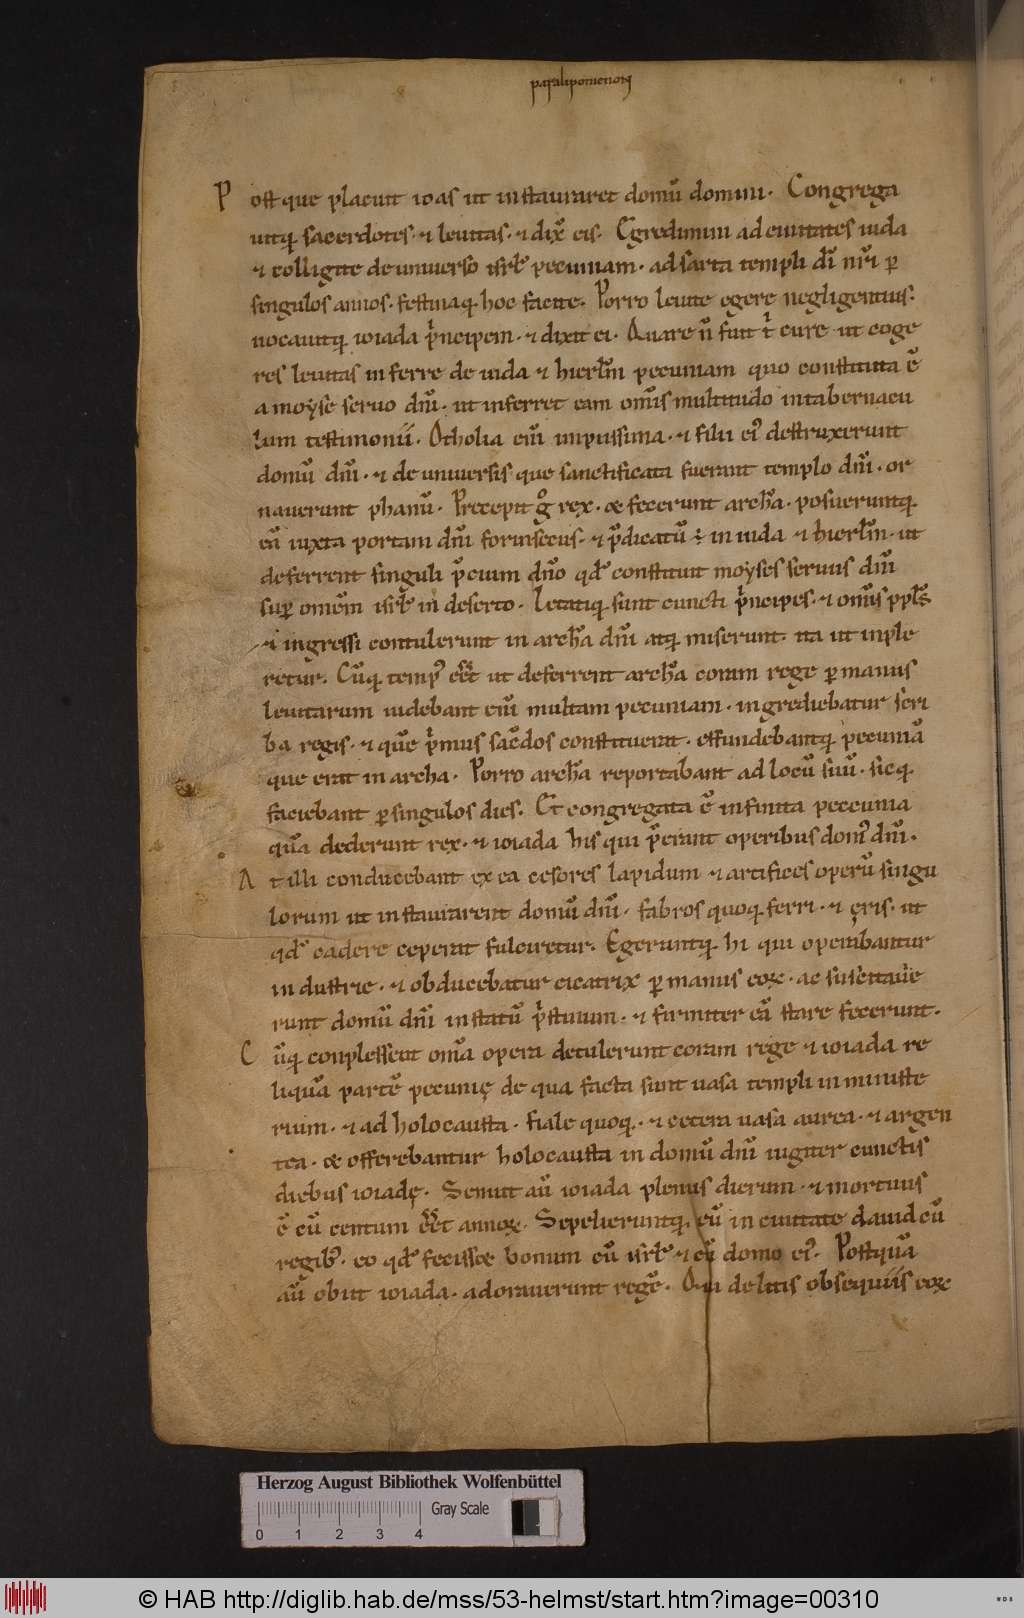 paralipomenon
Post que placuit ioas ut instauraret domū domini. Congrega
uitq; sacerdotes. & leuitas. & dix̄ eis. Egredimini ad ciuitates iuda
& colligite de uniuerso isr̄l pecuniam. ad sarta templi dī nr̄i p̱
singulos annos. festinaq; hoc facite. Porro leuite egere negligentius.
uocauitq; ioiada p̄ncipem. & dixit ei. Quare n̄ fuit t̄ cure ut coge
res leuitas inferre de iuda & hierlm̄ pecuniam quo constituta ē
a moyse seruo dn̄i. ut inferret eam om̄is multitudo in tabernacu
lum testimonii. Otholia eni͂ impiissima. & filii ei᾽ destruxerunt
domū dn̄i. & de uniuersis que sanctificata fuerant templo dn̄i. or
nauerunt phanū. Precepit g° rex. & fecerunt archā. posueruntq;
eā iuxta portam dn̄i forinsecus. & p̄dicatū ÷ in iuda & hierlm̄. ut
deferrent singuli p̄cium dn̄o qd̄ constituit moyses seruus dn̄i
suꝑ omēm isr̄l in deserto. Letatiq; sunt cuncti p̄ncipes. & om̄is ppl̄s
& ingressi contulerunt in archā dn̄i atq; miserunt. ita ut inple
retur. Cūq; temp᾽ eēt ut deferrent archā coram rege ꝑ manus
leuitarum uidebant eni͂ multam pecuniam. ingrediebatur scri
ba regis. & quē p̄mus sac̄dos constituerat. effundebantq; pecuniā
que erat in archa. Porro archā reportabant ad locū suū. sicq;
faciebant ꝑ singulos dies. Et congregata ē infinita peccunia
quā dederunt rex. & ioiada his qui p̄erant operibus dom᾽ dn̄i.
At illi conducebant ex ea cesores lapidum & artifices operū singu
lorum ut instaurarent domū dn̄i. fabros quoq; ferri. & ęris. ut
qd̄ cadere ceperat fulciretur. Egeruntq; hi qui operabantur
industrie. & obducebatur cicatrix ꝑ manus eoꝝ. ac suscitaue
runt domū dn̄i in statū p̄stinum. & firmiter eā stare fecerunt.
Cūq; conplessent om̄a opera detulerunt coram rege & ioiada re
liquā partē pecunię de qua facta sunt uasa templi in ministe
rium. & ad holocausta. fiale quoq;. & cetera uasa aurea. & argen
tea. & offerebantur holocausta in domū dn̄i iugiter cunctis
diebus ioiadę. Senuit aū ioiada plenus dierum. & mortuus
ē cū centum eēt annoꝝ. Sepelieruntq; eū in ciuitate dauid cū
regib᾽. eo qd̄ fecisset bonum cū isr̄l & cū domo ei᾽. Postquā
aū obiit ioiada. adorauerunt regē. Qui delitis obsequiis eoꝝ
Herzog August Bibliothek Wolfenbüttel
Gray Scale
0 1 2 3 4
© HAB http://diglib.hab.de/mss/53-helmst/start.htm?image=00310